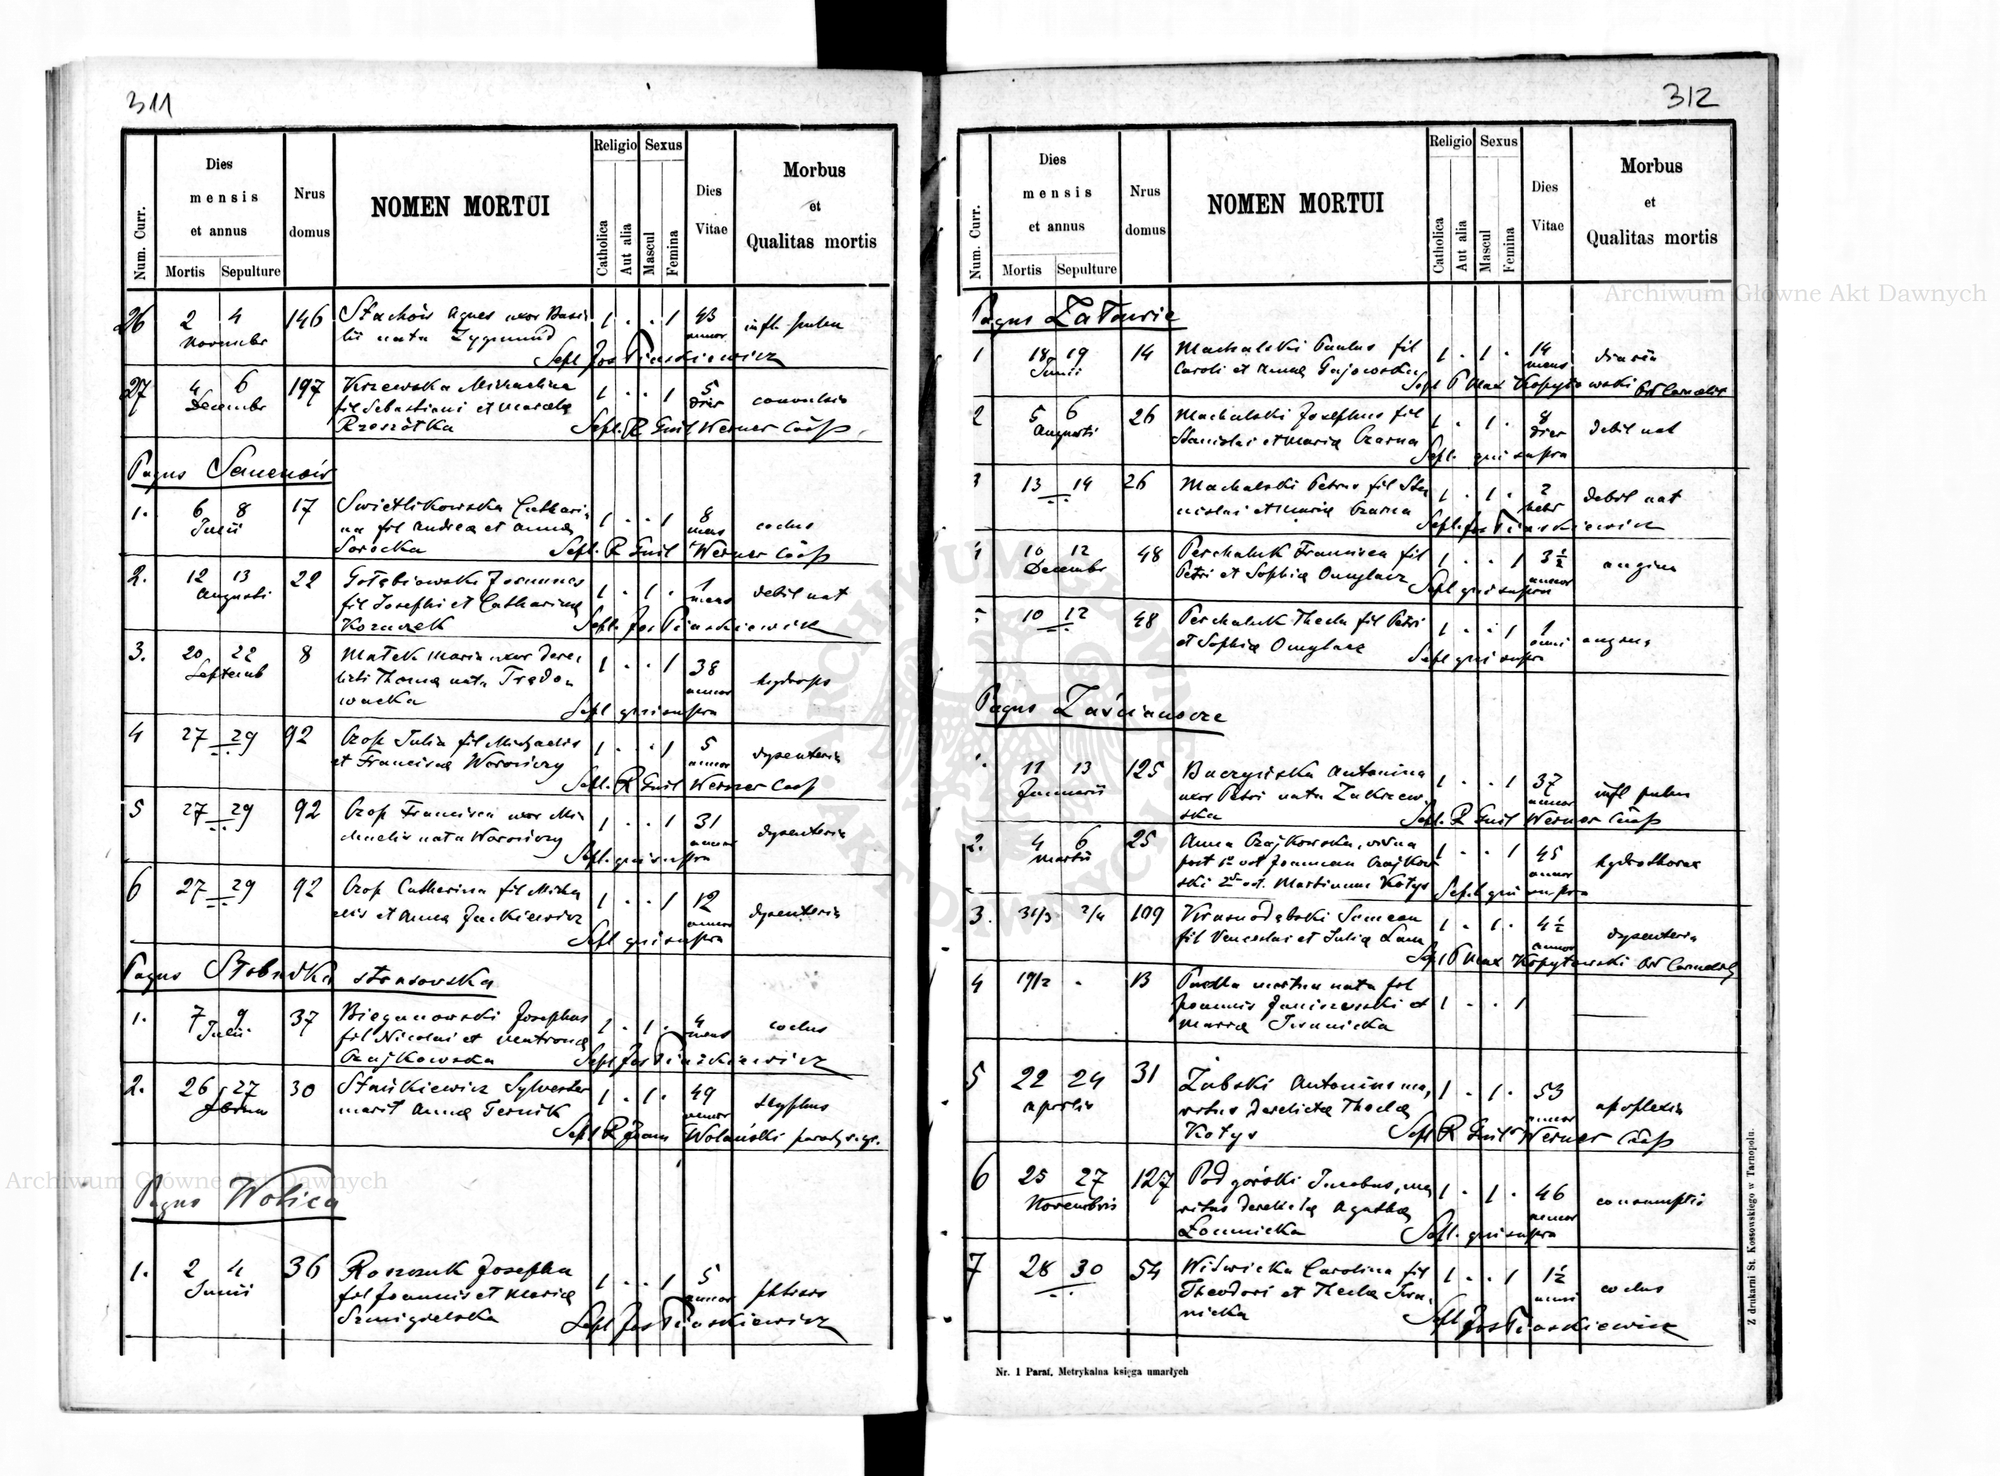 311
Num. Curr.
Dies
mensis
et annus
Mortis
Sepulture
Nrus
domus
NOMEN MORTUI
Religio
Catholica
Aut alia
Sexus
Mascul
Femina
Dies
Vitae
Morbus
et
Qualitas mortis
26 2 4 146 Stachów Agnes uxor Basi 1 . . 1 43
Novembr lii nata Zygmund annor infl. pulm
Sepl Jos Piaskiewicz
27 4 6 197 Krzewska Michaelina 1 . . 1 5
Decembr fil Sebastiani et Mariae dier convulsio
Rzeszótka Sepl. R Guil Werner Coop
Pagus
1. 6 8 17 Swietlikowska Cathari- 1 . . 1 8
Julii na fil Andreae et Annae mens coclus
Sorocka Sepl. R Guil Werner Coop
2. 12 13 22 Gołębiowski Joannes 1 . 1 . 1
Augusti fil Josephi et Catharinae mens debil nat
Sepl. Jos Piaskiewicz
3. 20 22 8 Małek Maria uxor dere- 1 . . 1 38
Septemb licti Thomae nata annor hydrops
Sepl qui supra
4 27 29 92 Czop Julia fil Michaelis 1 . . 1 5
et Franciscae Woroniczy annor dysenteria
Sepl. R Guil Werner Coop
5 27 29 92 Czop Francisca uxor Mi- 1 . . 1 31
chaelis nata Woroniczy annor dysenteria
Sepl. qui supra
6 27 29 92 Czop Catharina fil Micha 1 . . 1 12
elis et Annae Jackiewicz annor dysenteria
Sepl qui supra
Pagus Słobudka strusowska
1. 7 9 37 Bieganowski Josephus 1 . 1 . 4
Julii fil Nicolai et mens coclus
Czajkowska Sepl Jos Piaskiewicz
2. 26 27 30 Stańkiewicz Sylvester 1 . 1 . 49
marit Annae Ternik annor
Sepl R Joann Wolański
Pagus Wolica
1. 2 4 36 Josepha 1 . . 1 5
Junii fil Joannis et Mariae annor phtisis
Szmigielska Sepl Jos Piaskiewicz
312
Num. Curr.
Dies
mensis
et annus
Mortis
Sepulture
Nrus
domus
NOMEN MORTUI
Religio
Catholica
Aut alia
Sexus
Mascul
Femina
Dies
Vitae
Morbus
et
Qualitas mortis
Pagus Załawie
1 18 19 14 Machalski Paulus fil 1 . 1 . 14
Junii Caroli et Annae Gajowska mens diaria
Sepl P Max Kopytowski Ord Carmelit
2 5 6 26 Machalski Josephus fil 1 . 1 . 8
Augusti Stanislai et Mariae Czarna dier debil nat
Sepl. qui supra
3 13 14 26 Machalski Petrus fil Sta 1 . 1 . 2
nislai et Mariae Czarna hebr debil nat
Sepl. Jos Piaskiewicz
4 10 12 48 Perchaluk Francisca fil 1 . . 1 3½
Decembr Petri et Sophiae annor angina
Sepl qui supra
5 10 12 48 Perchaluk Thecla fil Petri 1 . . 1 1
et Sophiae anni angina
Sepl qui supra
Pagus Zaścianocze
1. 11 13 125 Buczyńska Antonina 1 . . 1 37
Januarii uxor Petri nata Zakrzew- annor infl pulm
ska Sepl. R Guil Werner Coop
2. 4 6 25 Anna Czajkowska, vidua 1 . . 1 45
Martii post 1o vot Joannem Czajkow annor hydrothorax
ski 2do vot. Martinum Kotys Sepl. qui supra
3. 31/3 2/4 109 Krasnodębski Simeon 1 . 1 . 4½
fil Venceslai et Juliae annor dysenteria
Sepl P Max Kopytowski Ord Carmelit
4 19/2 . 13 Puella mortua nata fil
Joannis Janiszewski et 1 . . 1
Mariae Iwanicka
5 22 24 31 Zubski Antonius ma- 1 . 1 . 53
Aprilis ritus derelictae Theclae annor apoplexia
Kotys Sepl R Guil Werner Coop
6 25 27 127 Podgórski Jacobus, ma 1 . 1 . 46
Novembris ritus derelictae Agathae annor consumptio
Łomnicka Sepl. qui supra
7 28 30 54 Wiśnicka Carolina fil 1 . . 1 1½
Theodori et Theclae Iwa- anni coclus
nicka Sepl Jos Piaskiewicz
Nr. 1 Paraf. Metrykalna księga umarłych
Z drukarni St. Kossowskiego w Tarnopolu.
Archiwum Główne Akt Dawnych
Archiwum Główne Akt Dawnych
ARCHIWUM GŁÓWNE AKT DAWNYCH